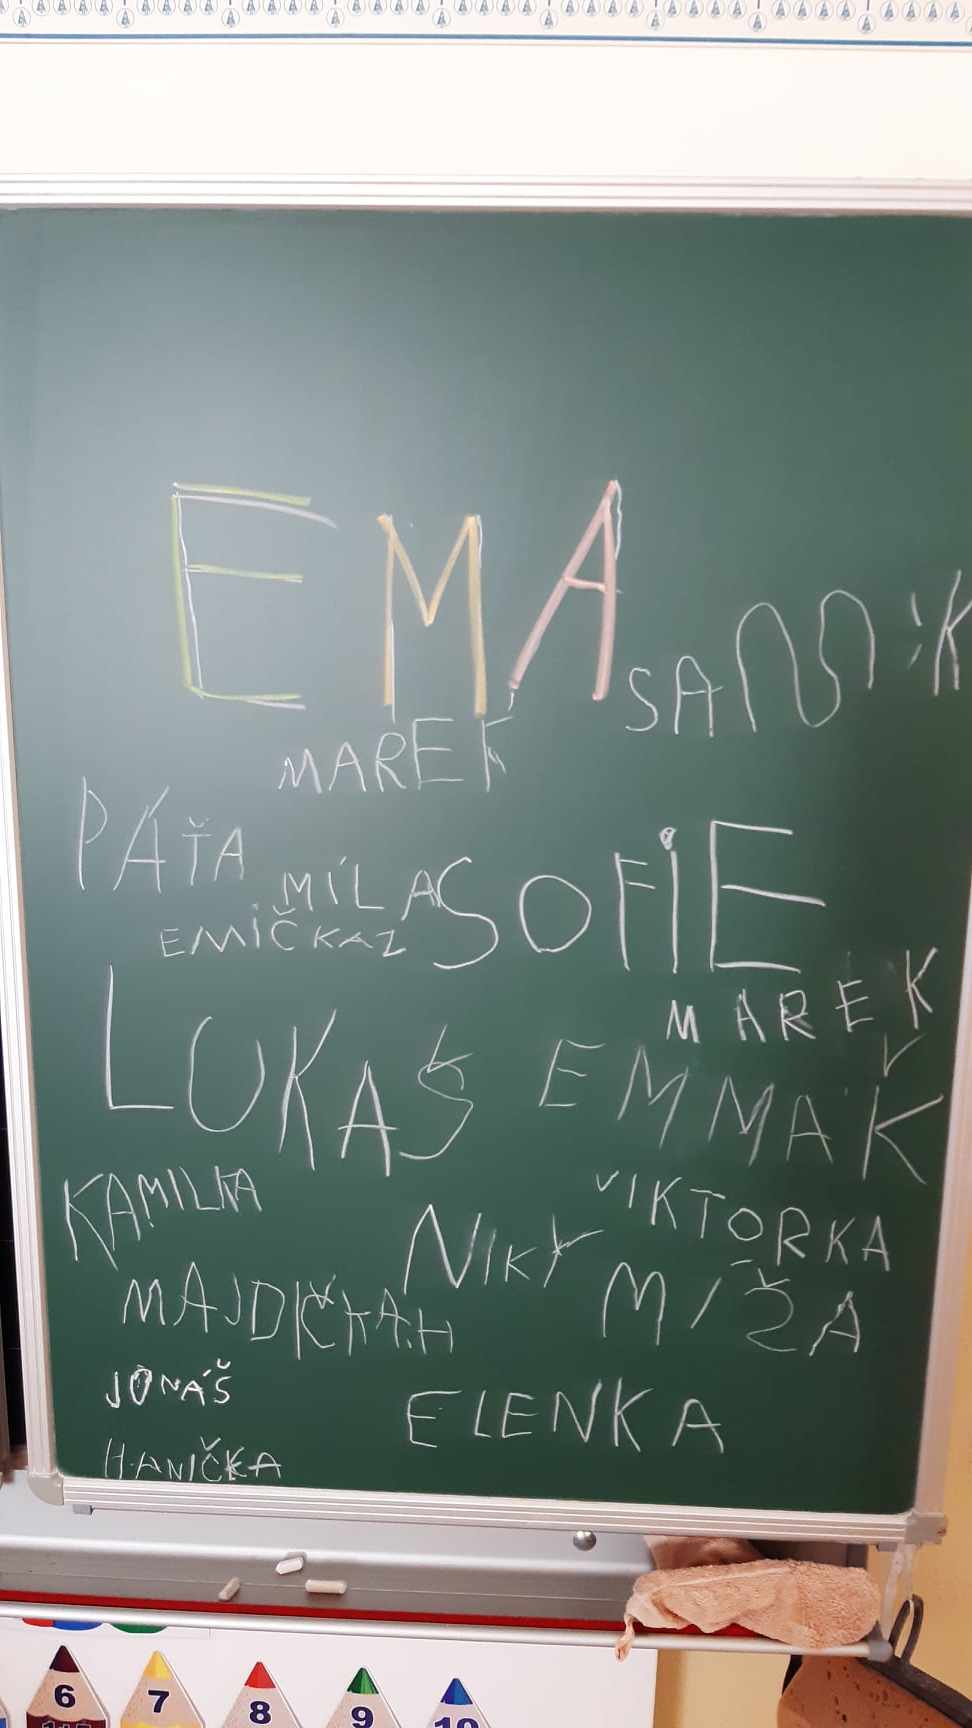 EMA
SAMÍK
MAREK
PÁŤA
MÍLA
SOFIE
EMIČKAZ
MAREK
LUKÁŠ
EMMA K
KAMILKA
VIKTORKA
NIKY
MAJDIČKA.H
MÍŽA
JONÁŠ
ELENKA
HANIČKA
6 7 8 9 10